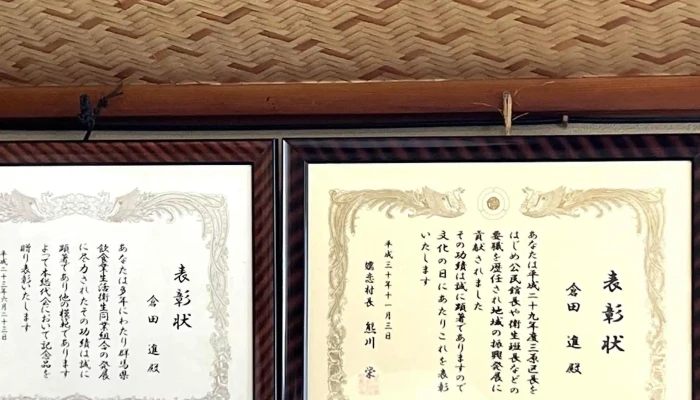 表彰状
倉田 進 殿
あなたは平成二十九年度三原区長を
はじめ公民館長や衛生班長などの
要職を歴任され地域の振興発展に
貢献されました
その功績は誠に顕著でありますので
文化の日にあたりこれを表彰
いたします
平成三十年十一月三日
嬬恋村長 熊川 栄
表彰状
倉田 進 殿
あなたは多年にわたり群馬県
飲食業生活衛生同業組合の発展
に尽力されたその功績は誠に
顕著であり他の模範であります
よって本総代会において記念品を
贈り表彰いたします
平成二十三年六月二十三日